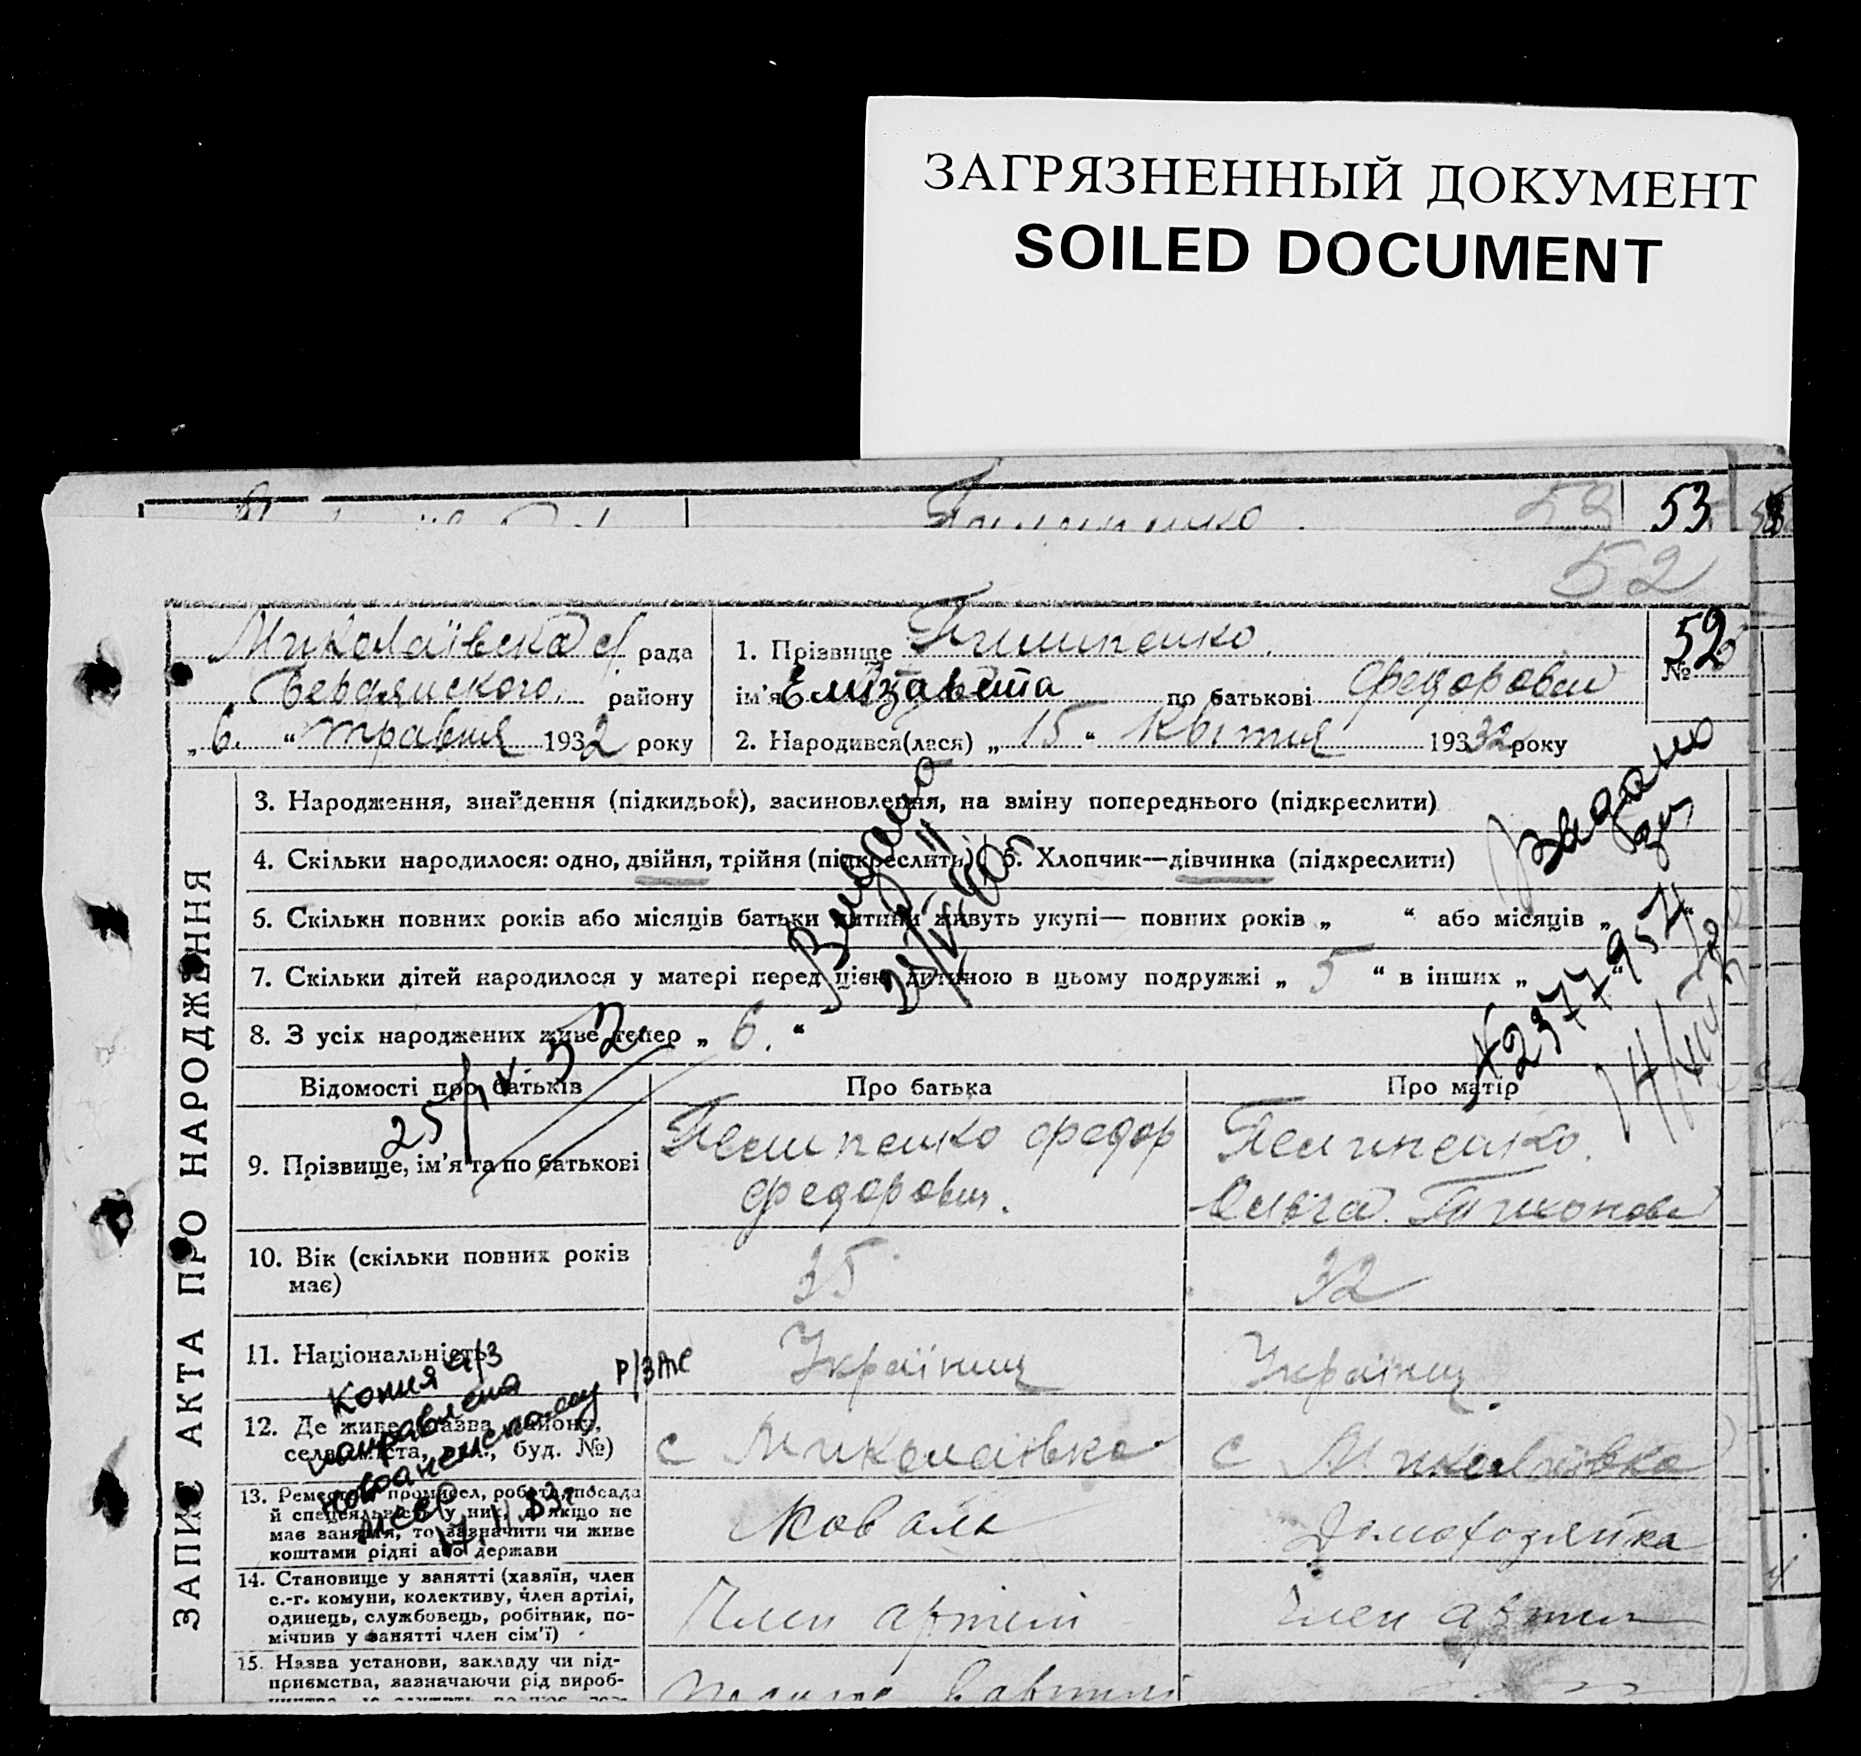 ЗАГРЯЗНЕННЫЙ ДОКУМЕНТ
SOILED DOCUMENT
53
52
ЗАПИС АКТА ПРО НАРОДЖЕННЯ
Миколаївська с/ рада
Бердянского району
„ 6. “ травня 1932 року
1. Прізвище Пилипенко
ім'я Елизавета по батькові Федоровна
№ 52
2. Народився(лася) „ 15 “ Квітня 19332 року
3. Народження, знайдення (підкидьок), засиновлення, на зміну попереднього (підкреслити)
4. Скільки народилося: одно, двійня, трійня (підкреслить) 6. Хлопчик—дівчинка (підкреслити)
5. Скільки повних років або місяців батьки дитини живуть укупі— повних років „ “ або місяців „
7. Скільки дітей народилося у матері перед цією дитиною в цьому подружжі „ 5 “ в інших „ “
8. З усіх народжених живе тепер „ 6. “
Видано
Видано
25/IV 52
Відомості про батьків Про батька Про матір
9. Прізвище, ім'я та по батькові
Пелипенко Федор
Федорович.
Пелипенко.
Ольга Тихонов
10. Вік (скільки повних років
має)
35 32
11. Національність
Українц Українц
Копия а/з
направлена
р/загс
12. Де живе (назва району,
села, міста, вул., буд. №)
с Миколаівка с Миколаівка
13. Ремество, промисел, робота, посада
й спеціяльність у них, а якщо не
має заняття, то зазначити чи живе
коштами рідні або держави
Коваль Домохозяйка
14. Становище у занятті (хазяїн, член
с.-г. комуни, колективу, член артілі,
одинець, службовець, робітник, по-
мічник у занятті член сім'ї)
Член артілі Член артілі
15. Назва установи, закладу чи під-
приємства, зазначаючи рід вироб-